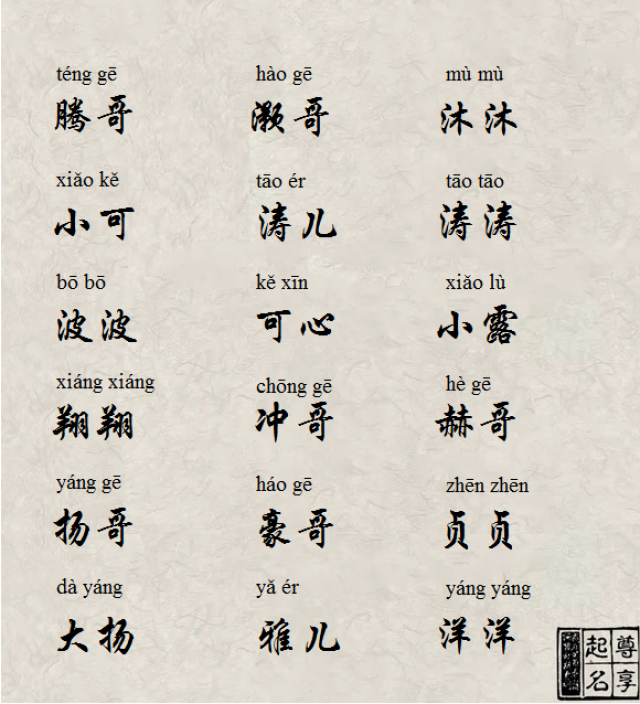 téng gē hào gē mù mù
腾哥 灏哥 沐沐
xiǎo kě tāo ér tāo tāo
小可 涛儿 涛涛
bō bō kě xīn xiǎo lù
波波 可心 小露
xiáng xiáng chōng gē hè gē
翔翔 冲哥 赫哥
yáng gē háo gē zhēn zhēn
扬哥 豪哥 贞贞
dà yáng yǎ ér yáng yáng
大扬 雅儿 洋洋
尊享
起名